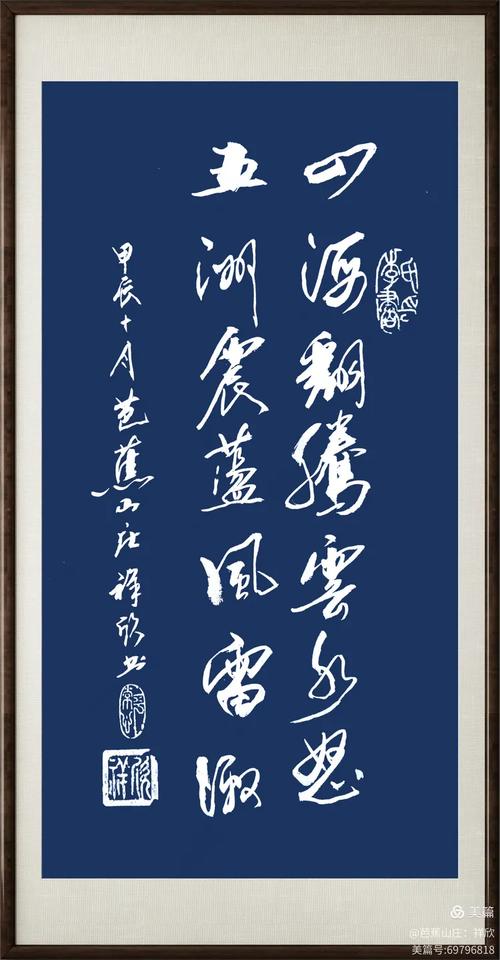 四海翻騰雲水怒
五洲震蕩風雷激
甲辰十月芭蕉山庄祥欣书
美篇
@芭蕉山庄：祥欣
美篇号:69796818